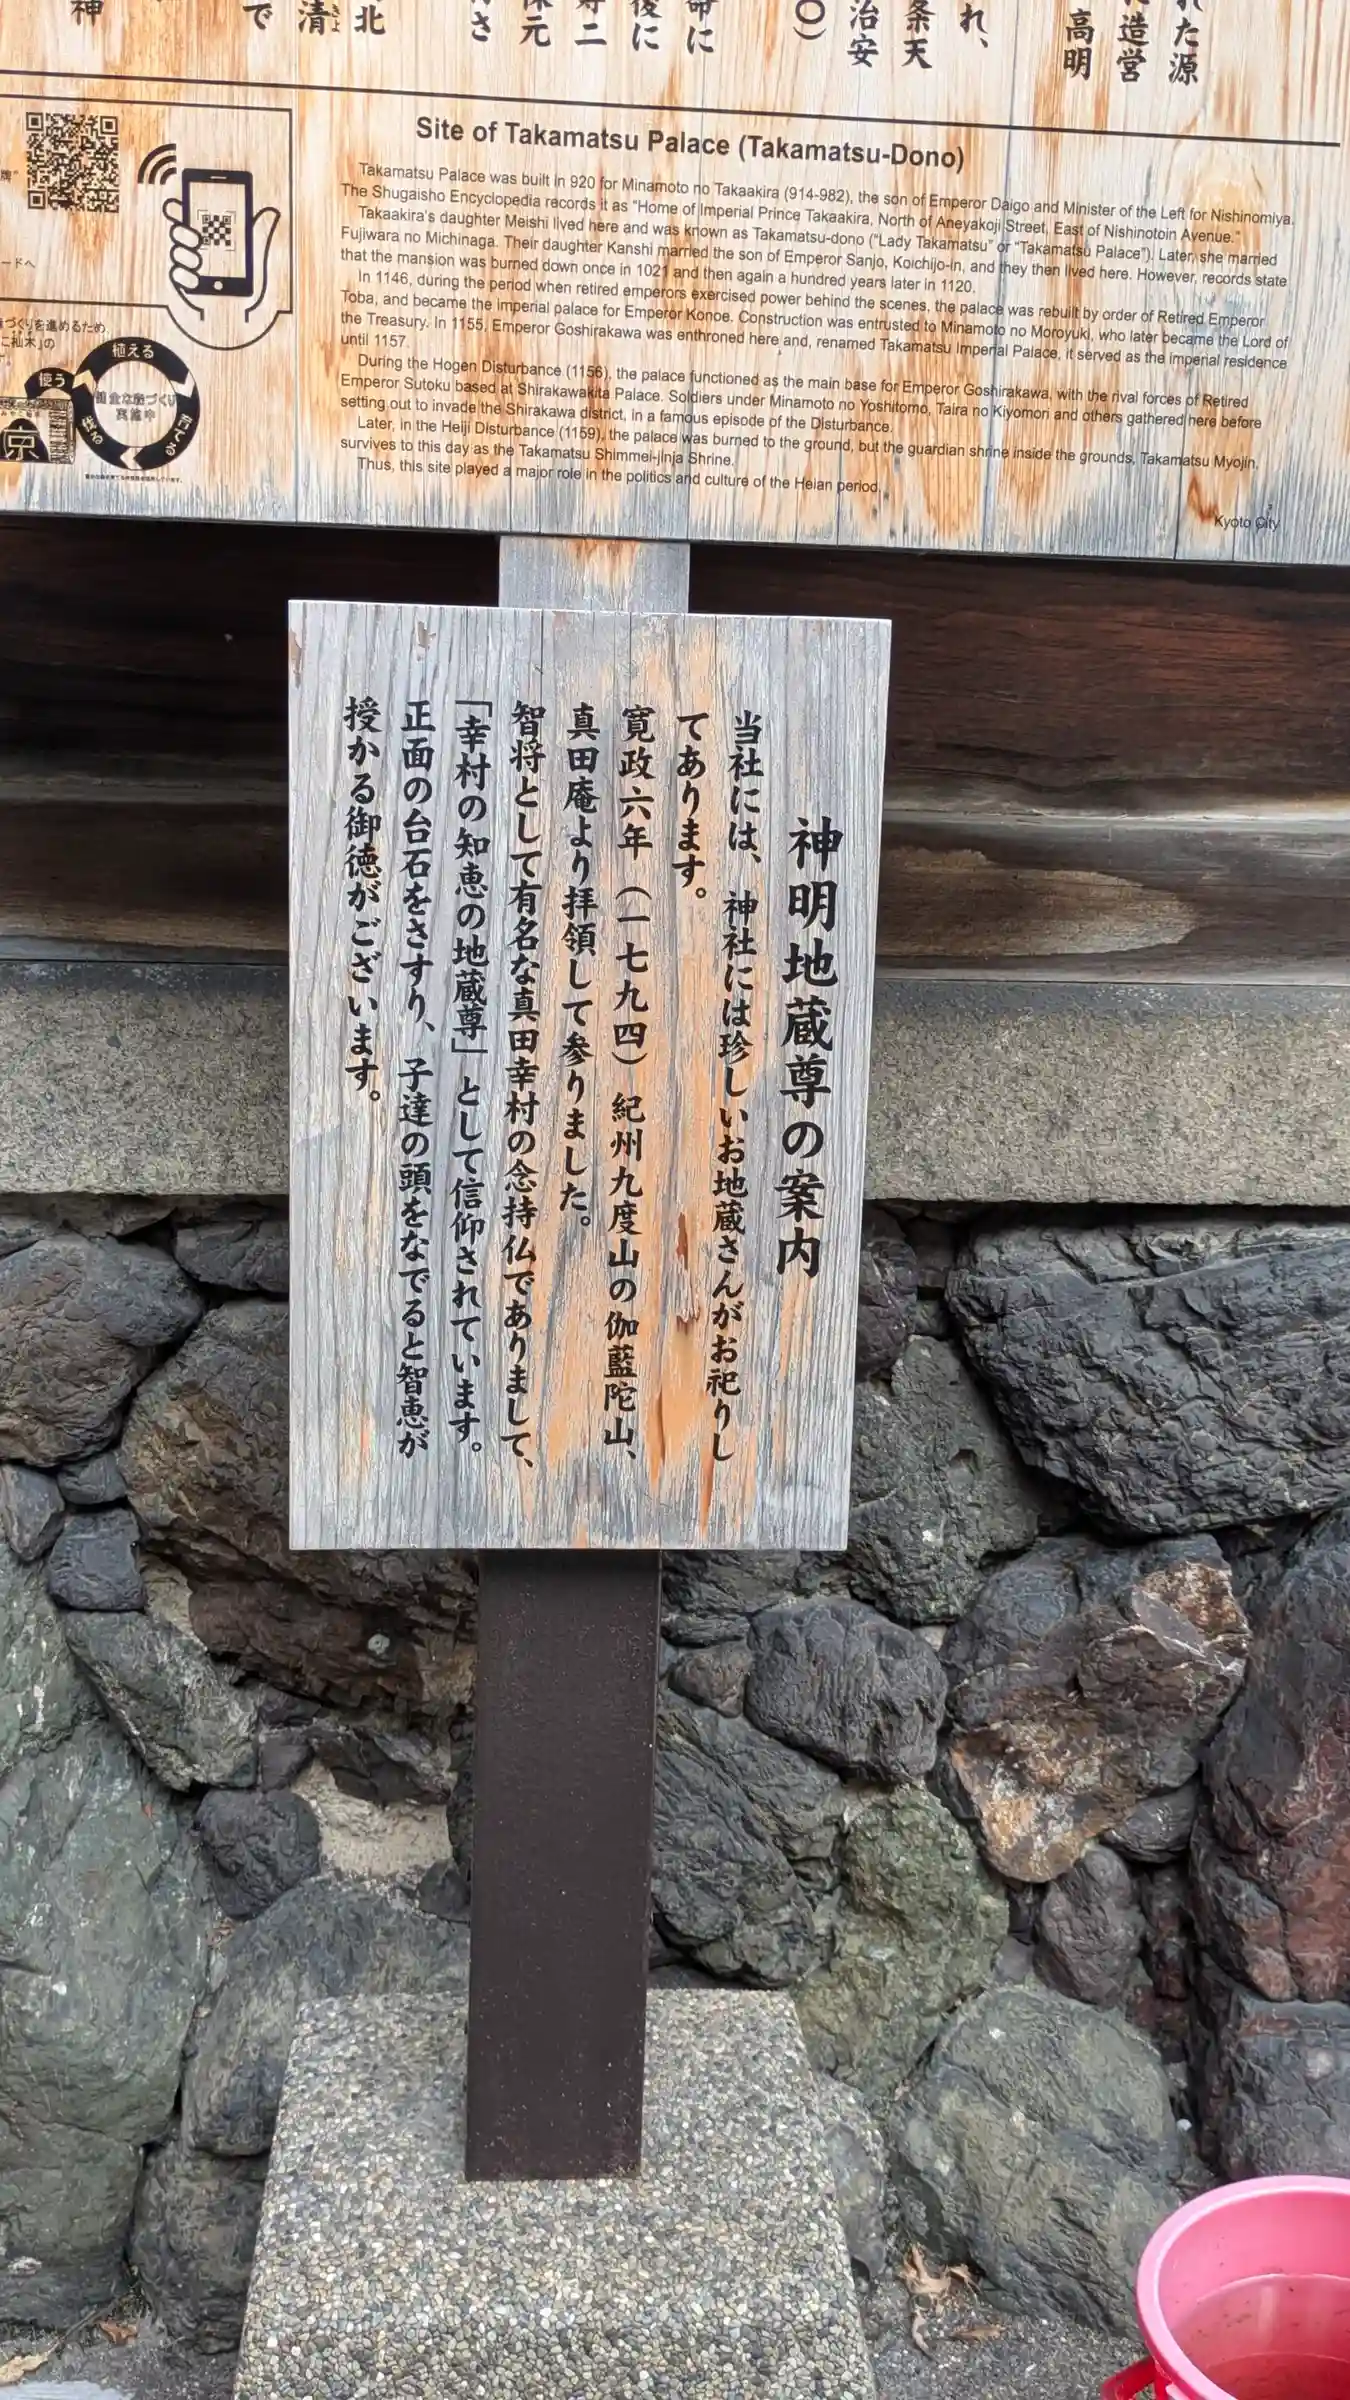 れた源
造営
高明
れ、
条天
治安
〇)
命に
後に
寿二
保元
北
清
きよ
で
神
Site of Takamatsu Palace (Takamatsu-Dono)
Takamatsu Palace was built in 920 for Minamoto no Takaakira (914-982), the son of Emperor Daigo and Minister of the Left for Nishinomiya.
The Shugaisho Encyclopedia records it as “Home of Imperial Prince Takaakira, North of Aneyakoji Street, East of Nishinotoin Avenue.”
Takaakira's daughter Meishi lived here and was known as Takamatsu-dono (“Lady Takamatsu” or “Takamatsu Palace”). Later, she married
Fujiwara no Michinaga. Their daughter Kanshi married the son of Emperor Sanjo, Koichijo-in, and they then lived here. However, records state
that the mansion was burned down once in 1021 and then again a hundred years later in 1120.
In 1146, during the period when retired emperors exercised power behind the scenes, the palace was rebuilt by order of Retired Emperor
Toba, and became the imperial palace for Emperor Konoe. Construction was entrusted to Minamoto no Moroyuki, who later became the Lord of
the Treasury. In 1155, Emperor Goshirakawa was enthroned here and, renamed Takamatsu Imperial Palace, it served as the imperial residence
until 1157.
During the Hogen Disturbance (1156), the palace functioned as the main base for Emperor Goshirakawa, with the rival forces of Retired
Emperor Sutoku based at Shirakawakita Palace. Soldiers under Minamoto no Yoshitomo, Taira no Kiyomori and others gathered here before
setting out to invade the Shirakawa district, in a famous episode of the Disturbance.
Later, in the Heiji Disturbance (1159), the palace was burned to the ground, but the guardian shrine inside the grounds, Takamatsu Myojin,
survives to this day as the Takamatsu Shimmei-jinja Shrine.
Thus, this site played a major role in the politics and culture of the Heian period.
Kyoto City
ードへ
づくりを進めるため、
植える
育てる
使う
実施中
京
神明地蔵尊の案内
当社には、神社には珍しいお地蔵さんがお祀りし
てあります。
寛政六年（一七九四）紀州九度山の伽藍陀山、
真田庵より拝領して参りました。
智将として有名な真田幸村の念持仏でありまして、
「幸村の知恵の地蔵尊」として信仰されています。
正面の台石をさすり、子達の頭をなでると智恵が
授かる御徳がございます。